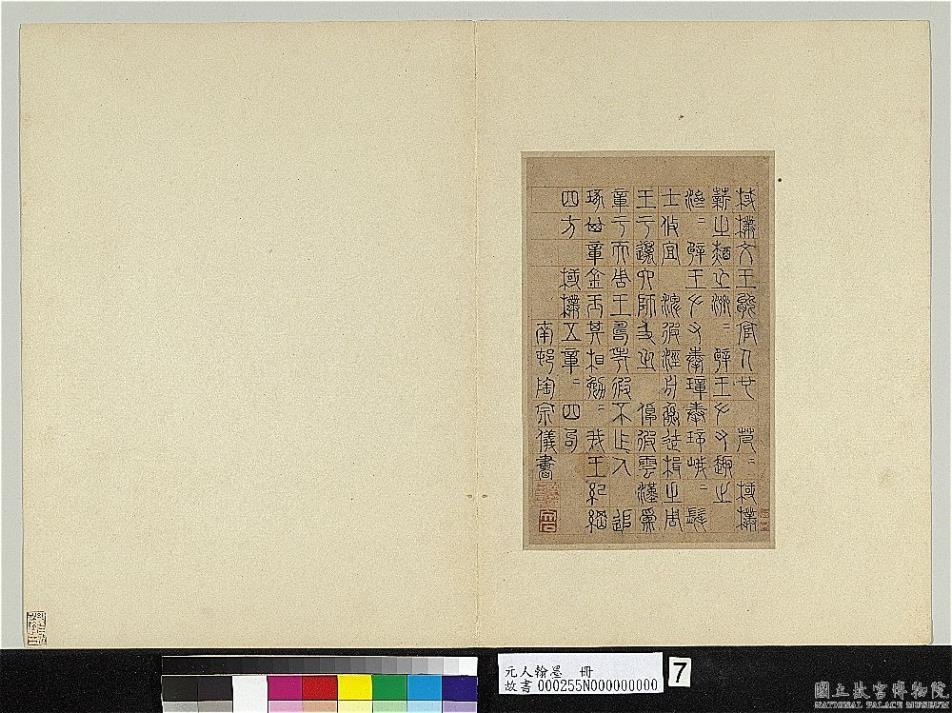 棫樸文王能官人也　芃〻棫樸
薪之槱之濟〻辟王左右趣之
濟〻辟王左右奉璋奉璋峨〻髦
士攸宜　淠彼涇舟烝徒楫之周
王于邁六師及之　倬彼雲漢為
章于天周王壽考遐不作人　追
琢其章金玉其相勉〻我王紀綱
四方　棫樸五章〻四句
南邨陶宗儀書
元人翰墨　冊
故書 000255N000000000
7
國立故宮博物院
NATIONAL PALACE MUSEUM